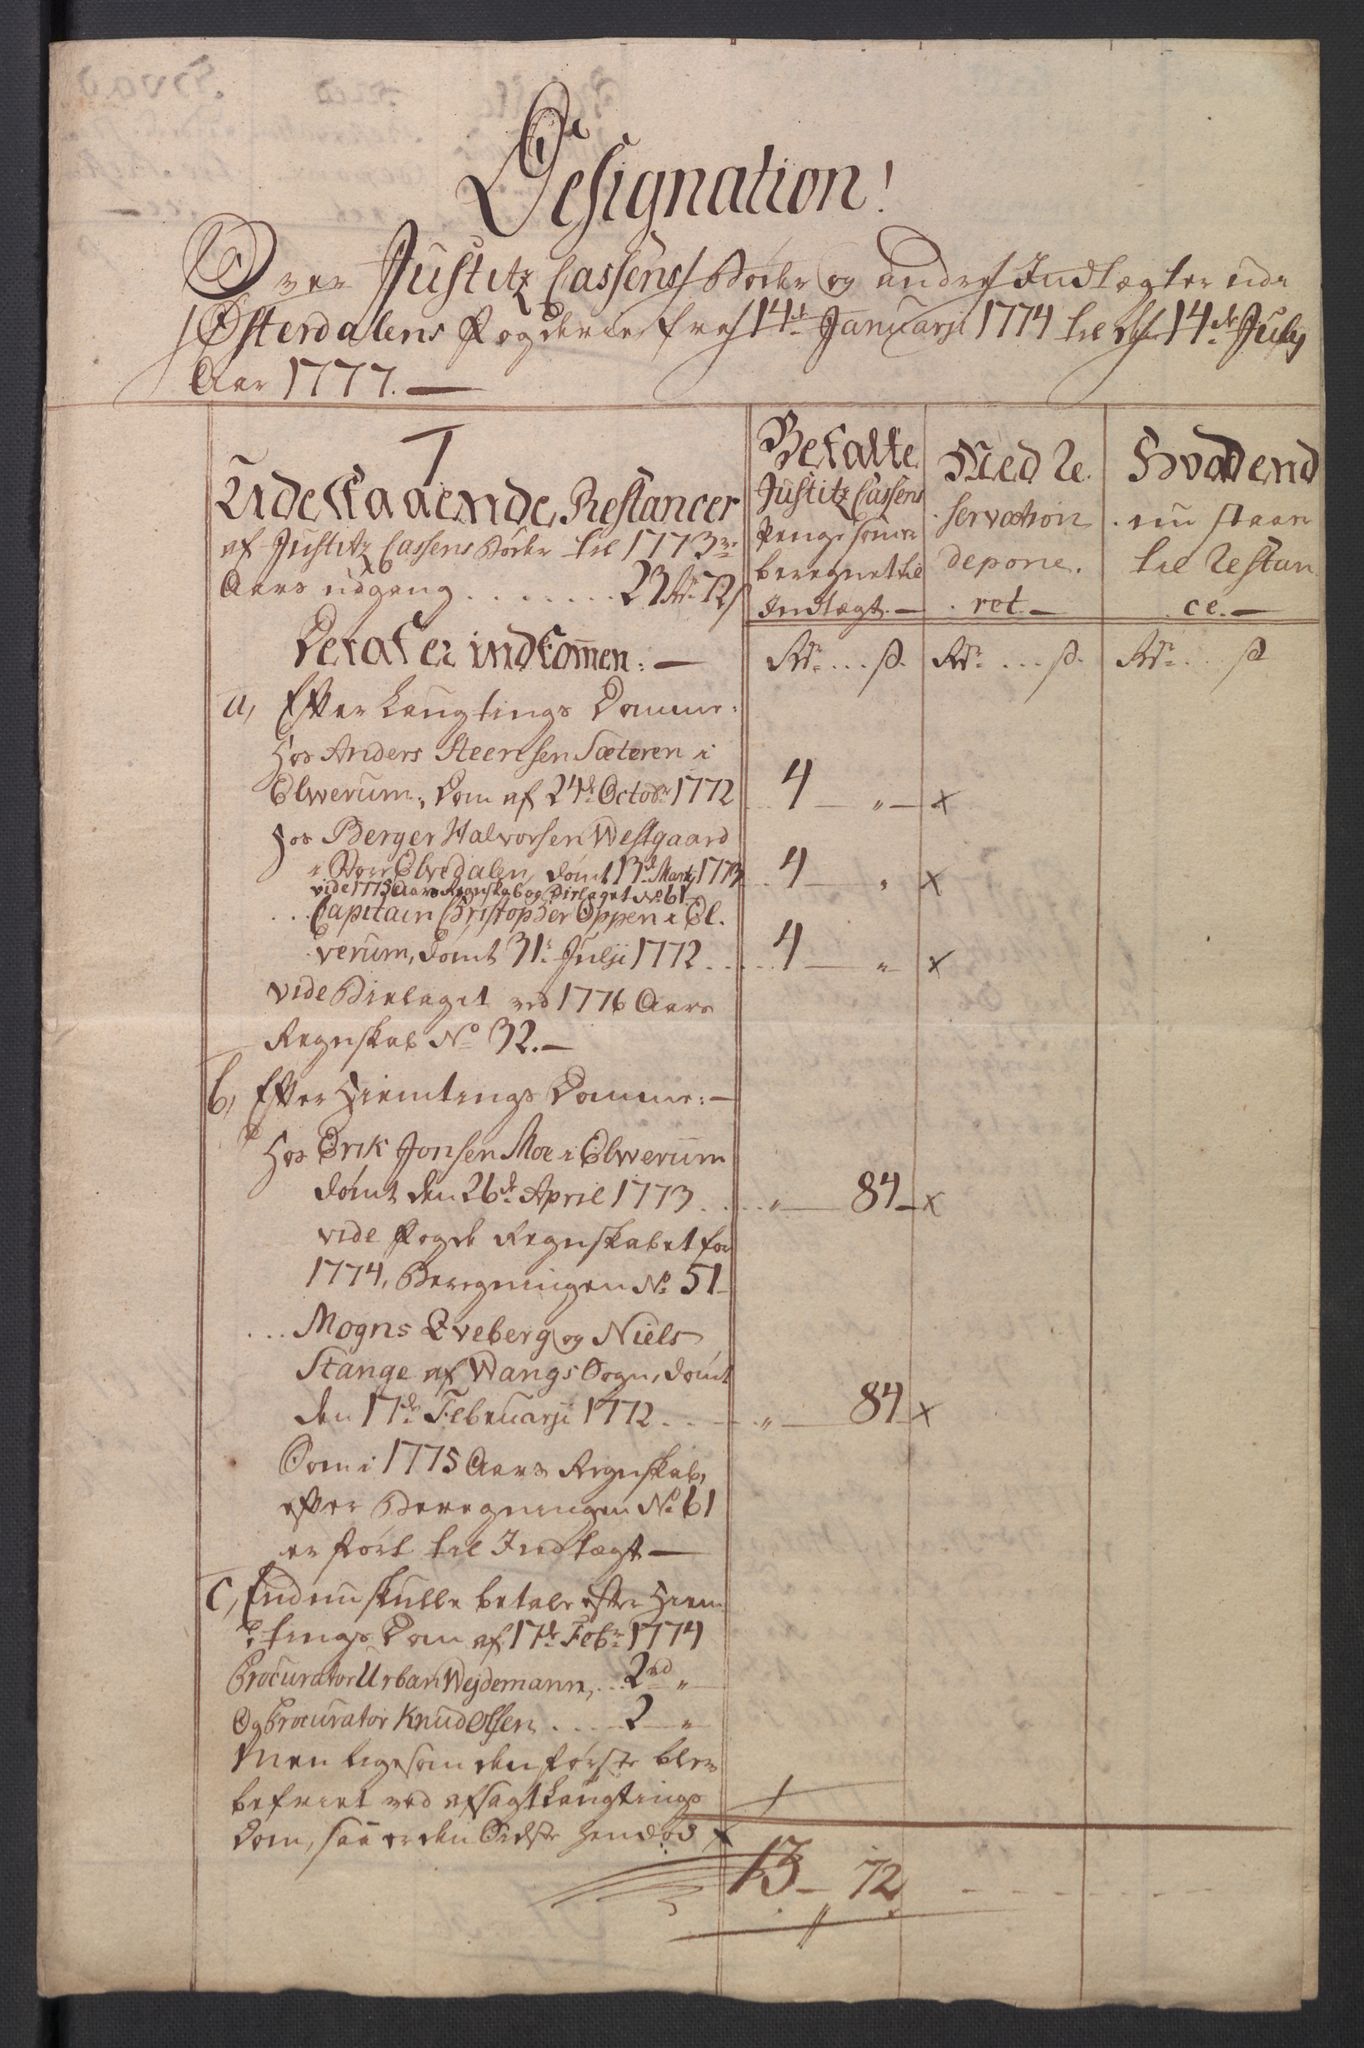 Designation!
Over Justitz Cassens Bøder og andre Indtægter udi
Østerdalens Fogderie fra 14de Januarji 1774 til d. 14de July
Aar 1777.—
I
Udestaaende Restancer
af Justitz Cassens Bøder til 1773de
Aars udgang ........ 23 Rdr 72 ß
Betalte
Justitz Cassens
Penge som er
beregnet til
Indtægt.—
Med Re-
servation
depone-
ret.—
Hvad end
nu staar
til Restan
ce.—
Deraf er indkommen:—
Rdr... ß. Rdr... ß. Rdr... ß
a, Efter Laugtings Domme:
Hos Anders Steensen Sæteren i
Elwerum, Dom af 24de Octobr 1772 4 — " — x
Hos Berger Halvorsen Westgaard
i Stor Elvedalen, dømt 13de Marty 1773 4 — " x
vide 1775 Aars Regnskab og Birlaget No 61
... Capitain Christopher Oppen i El-
verum, dømt 31te Julji 1772 .... 4 — " x
vide Birlaget ved 1776 Aars
Regnskab No 32.—
b, Efter Hiemtings Domme:—
Hos Erik Jonsen Moe i Elwerum
dømt den 26de April 1773 .... " — 84 — x
vide Fogde Regnskabet for
1774, Beregningen No 51
... Mogns Qveberg og Niels
Stange af Wangs Sogn, dømt
den 17de Februarji 1772 .... " — 84 x
Som i 1775 Aars Regnskab,
efter Beregningen No 61
er ført til Indtægt —
C, Endnu skulle betale efter Hiem
tings Dom af 17de Febr 1774
Procurator Urban Wejdemann, ... 2 rd "
Og Procurator Knud Olsen .... 2 — "
Men ligesom den første blev
befriet ved afsagt Laugtings
Dom, saa er den Sidste hendød x
13 — 72